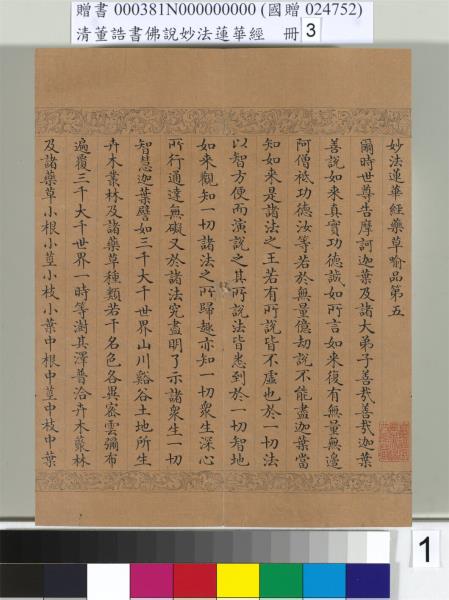 贈書 000381N000000000 (國贈 024752)
清董誥書佛說妙法蓮華經 冊 3
妙法蓮華經藥草喻品第五
爾時世尊告摩訶迦葉及諸大弟子善哉善哉迦葉
善說如來真實功德誠如所言如來復有無量無邊
阿僧祇功德汝等若於無量億劫說不能盡迦葉當
知如來是諸法之王若有所說皆不虛也於一切法
以智方便而演說之其所說法皆悉到於一切智地
如來觀知一切諸法之所歸趣亦知一切眾生深心
所行通達無礙又於諸法究盡明了示諸眾生一切
智慧迦葉譬如三千大千世界山川谿谷土地所生
卉木叢林及諸藥草種類若干名色各異密雲彌布
遍覆三千大千世界一時等澍其澤普洽卉木叢林
及諸藥草小根小莖小枝小葉中根中莖中枝中葉
1